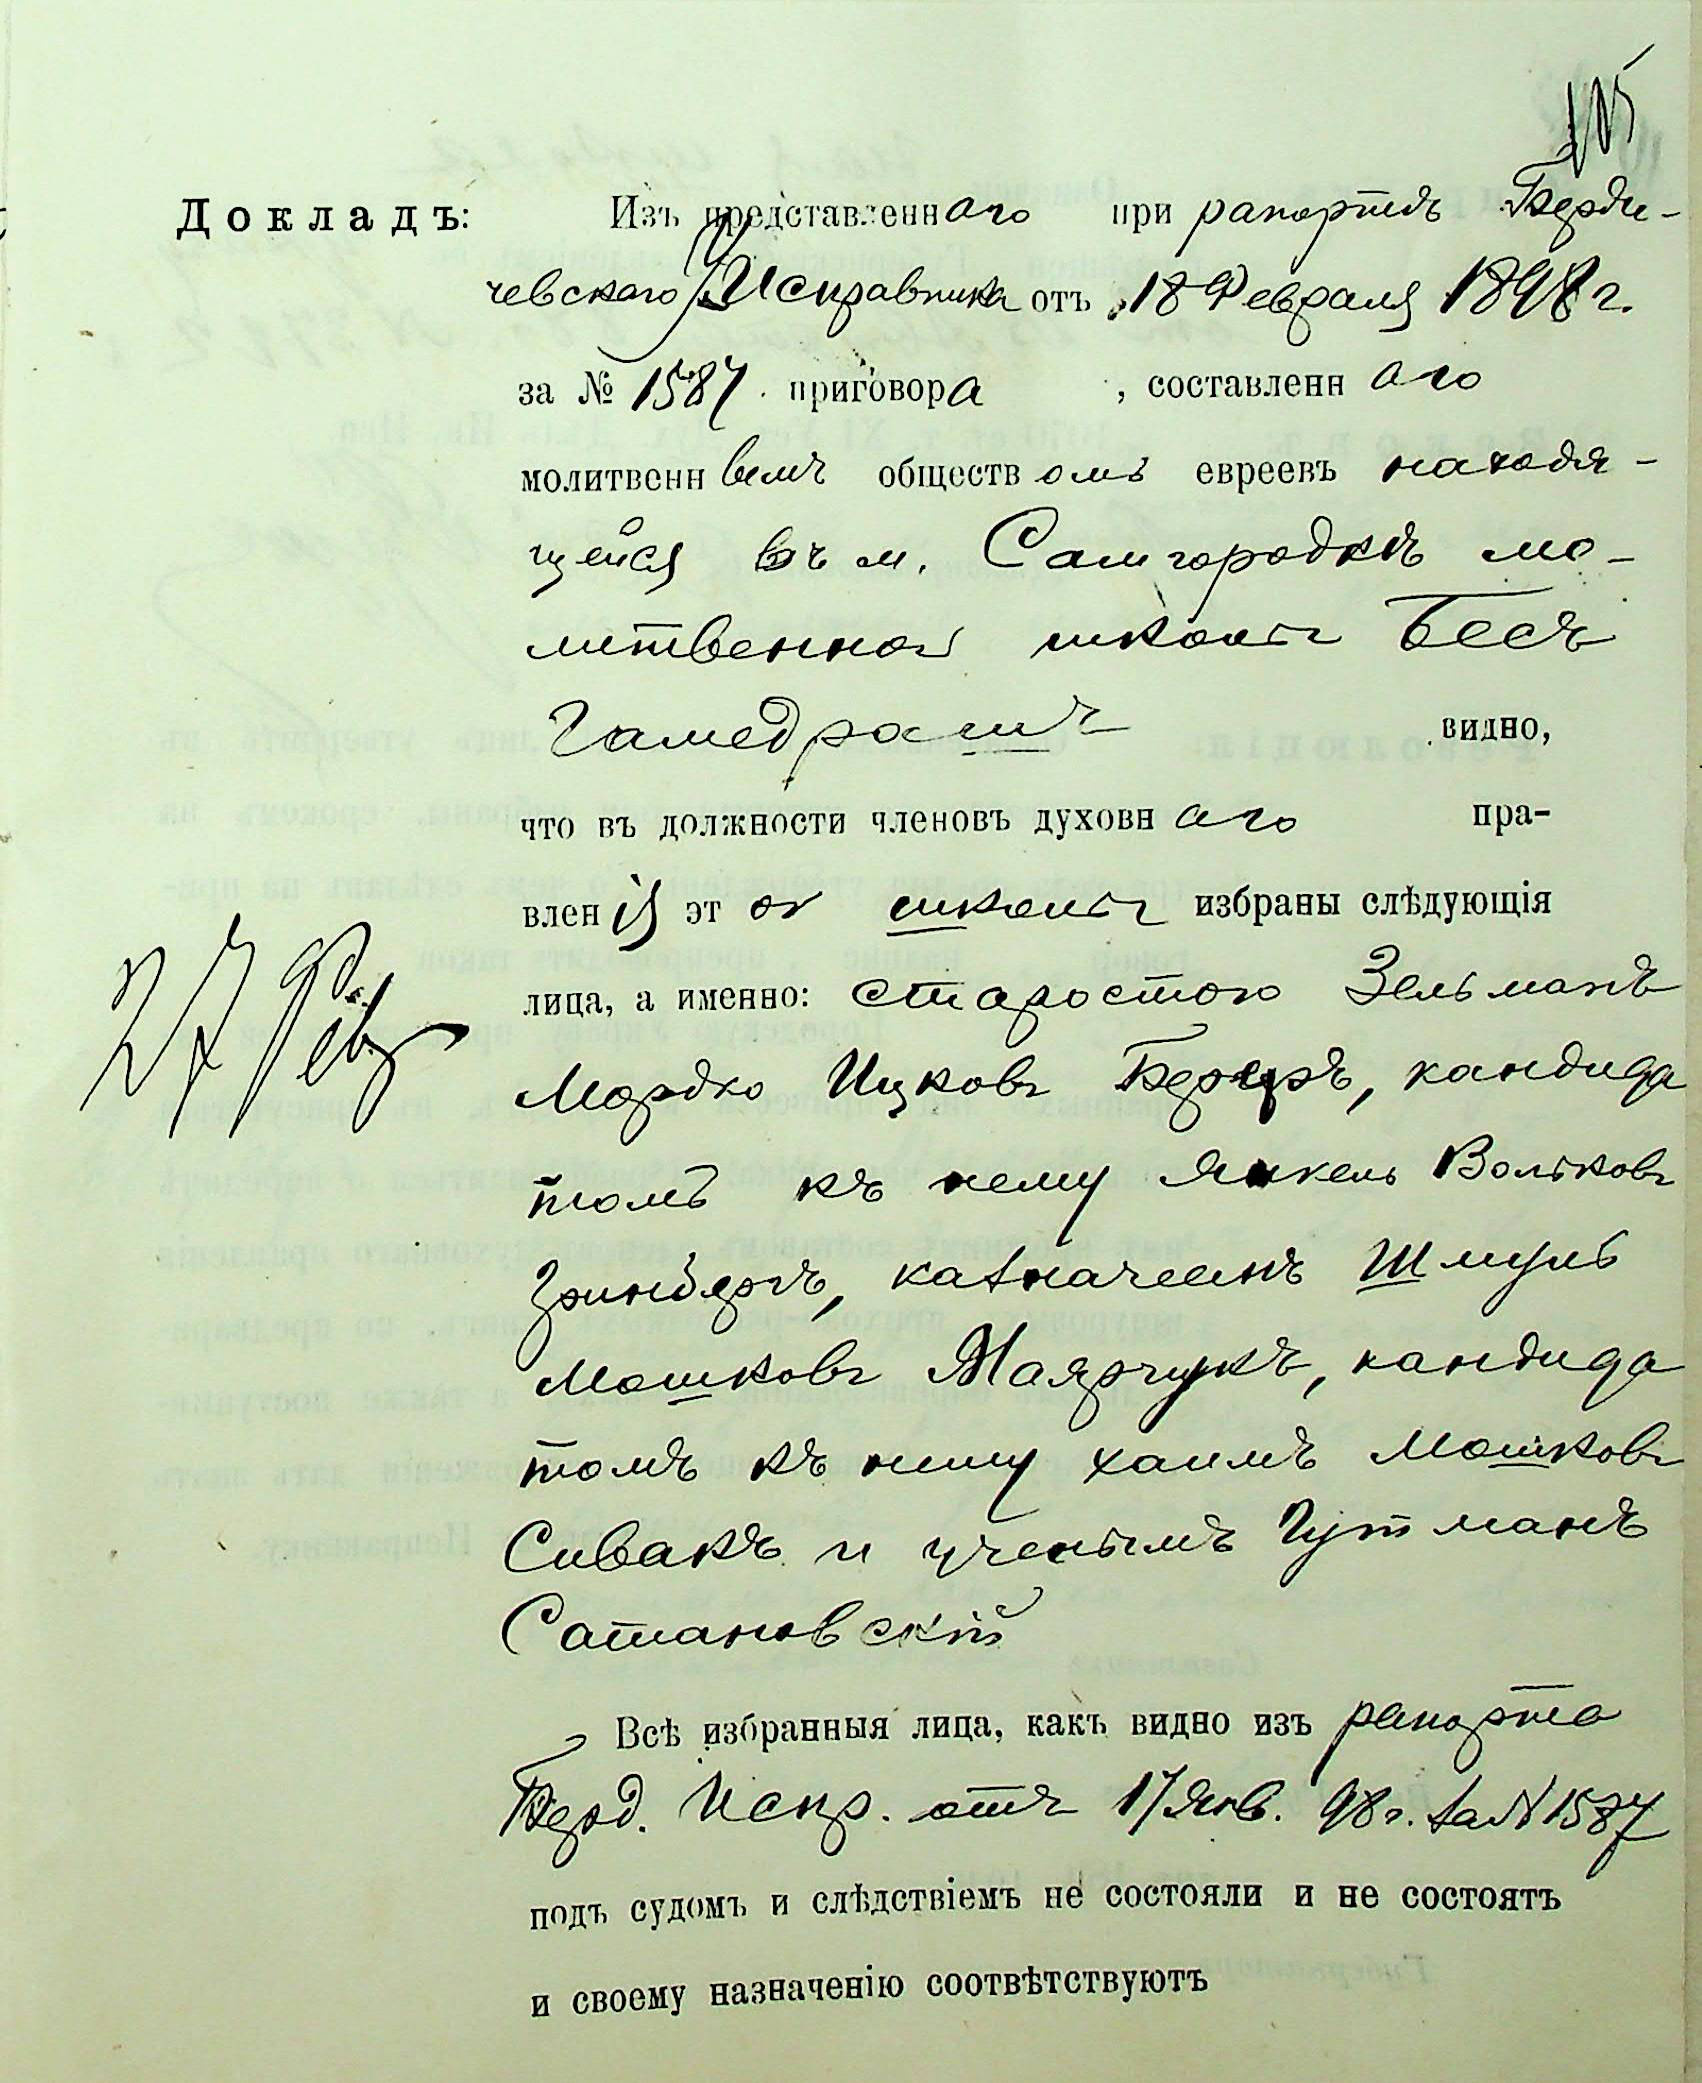 105
Докладъ: Изъ представленнаго при рапортѣ Берди-
чевскаго Исправника отъ 18 Февраля 1898 г.
за № 1587 приговора, составленнаго
молитвеннымъ обществомъ евреевъ находя-
щейся въ м. Самгородкѣ мо-
литвенной школы Бесъ
Гамедрашъ видно,
что въ должности членовъ духовнаго пра-
вленія этой школы избраны слѣдующія
27 Фев
лица, а именно: старостою Зельманъ
Мордко Ицковъ Бергеръ, кандида
томъ къ нему Янкель Вольковъ
Гринбергъ, казначеемъ Шмуль
Мошковъ Маярчукъ, кандида
томъ къ нему Хаимъ Мошковъ
Сивакъ и ученымъ Гутманъ
Сатановскій
Всѣ избранныя лица, какъ видно изъ рапорта
Берд. Испр. отъ 17 Янв. 98 г. за № 1587
подъ судомъ и слѣдствіемъ не состояли и не состоятъ
и своему назначенію соотвѣтствуютъ